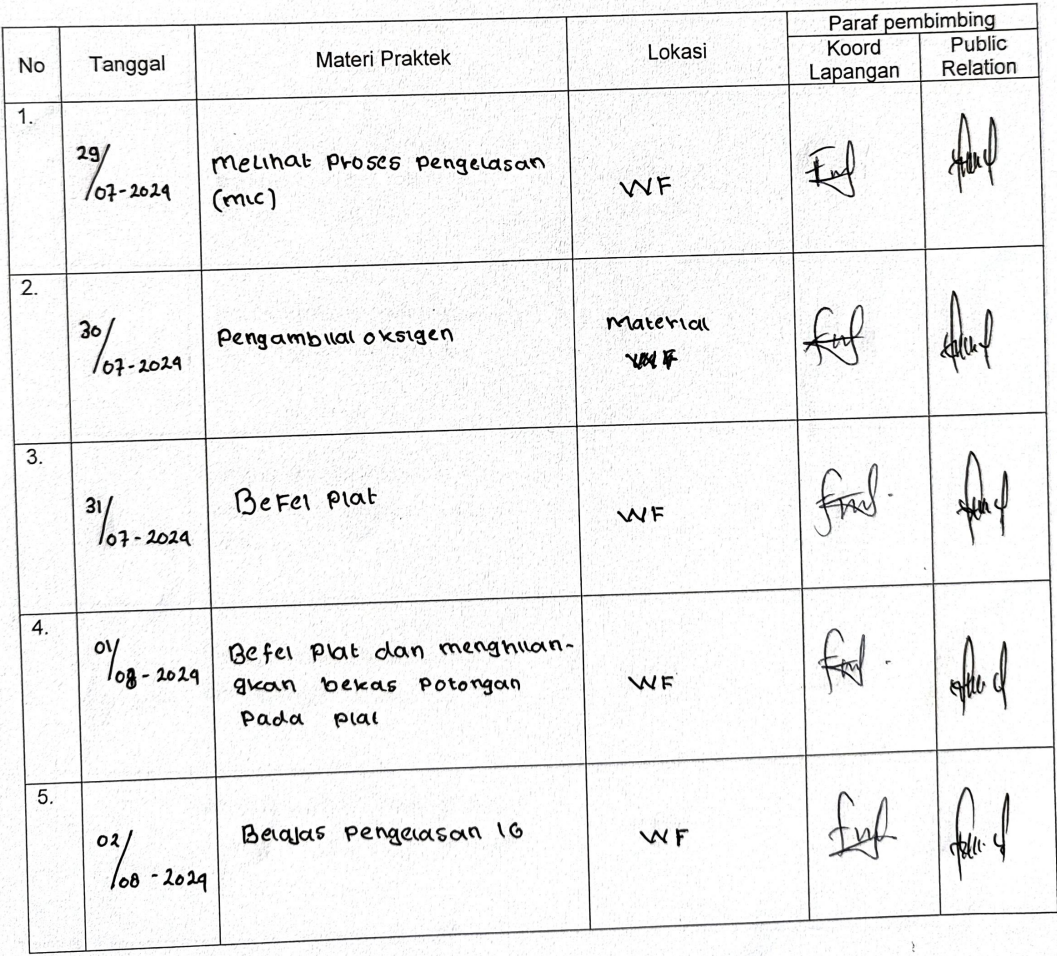 No
Tanggal
Materi Praktek
Lokasi
Paraf pembimbing
Koord
Lapangan
Public
Relation
1.
29/
07-2024
Melihat Proses pengelasan
(mic)
WF
2.
30/
07-2024
Pengambilal oksigen
Material
3.
31/
07-2024
Befel Plat
WF
4.
01/
08-2024
Befel Plat dan menghilan-
gkan bekas Potongan
Pada plat
WF
5.
02/
08-2024
Belajas Pengelasan 1G
WF